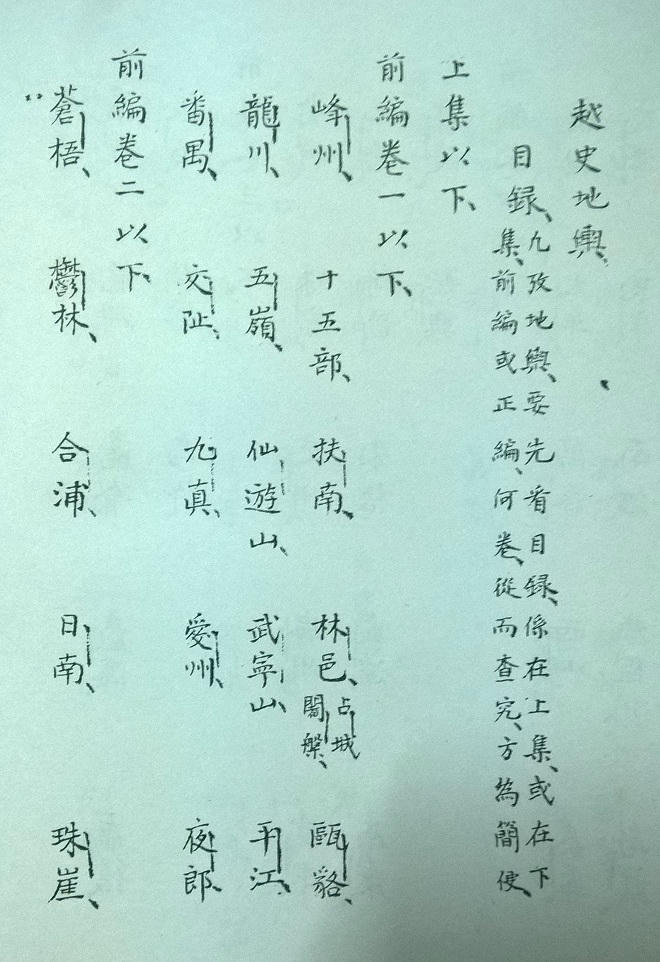 越史地輿、
目録、
九攷地輿、要先看目録、係在上集、或在下
集、前編或正編、何卷、從而查究、方為簡便、
上集以下、
前編卷一以下、
峰州、 十五部、 扶南、 林邑、 占城 闍槃、 甌貉、
龍川、 五嶺、 仙遊山、 武寧山、 平江、
番禺、 交阯、 九真、 愛州、 夜郎、
前編卷二以下、
蒼梧、 鬱林、 合浦、 日南、 珠崖、